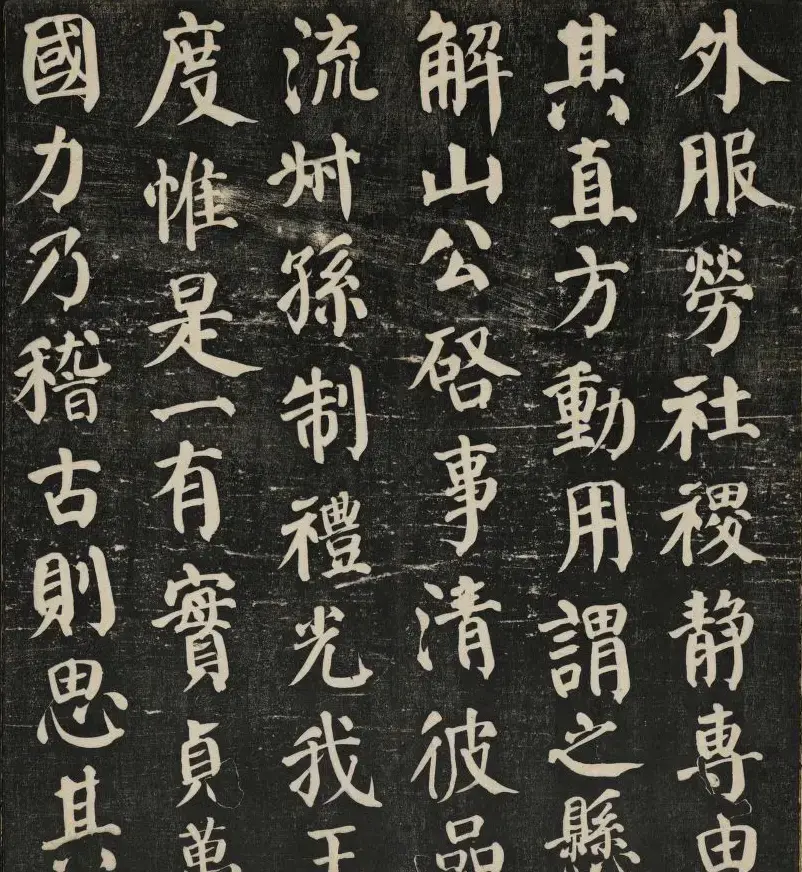 外服勞社稷静專由
其直方動用謂之縣
解山公啓事清彼品
流叔孫制禮光我王
度惟是一有實貞萬
國力乃稽古則思其